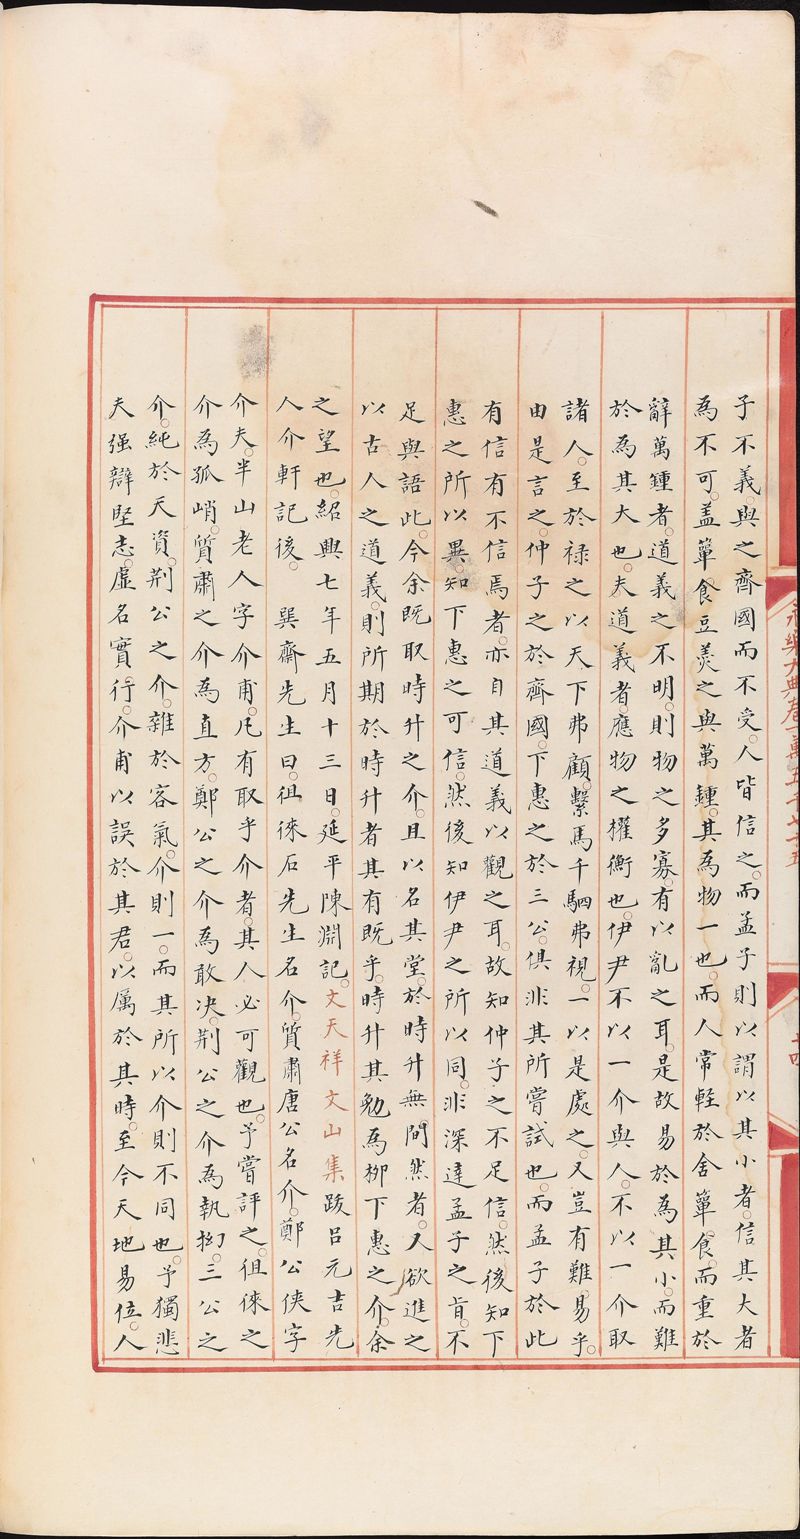 永樂大典卷一萬五千七十五
十四
子不義。與之齊國而不受。人皆信之。而孟子則以謂以其小者。信其大者
為不可。盖簞食豆羹之與萬鍾。其為物一也。而人常輕於舍簞食。而重於
辭萬鍾者。道義之不明。則物之多寡。有以亂之耳。是故易於為其小。而難
於為其大也。夫道義者。應物之權衡也。伊尹不以一介與人。不以一介取
諸人。至於禄之以天下弗顧。繫馬千駟弗視。一以是處之。又豈有難易乎。
由是言之。仲子之於齊國。下惠之於三公。俱非其所嘗試也。而孟子於此
有信有不信焉者。亦自其道義以觀之耳。故知仲子之不足信。然後知下
惠之所以異。知下惠之可信。然後知伊尹之所以同。非深達孟子之旨。不
足與語此。今余既取時升之介。且以名其堂。於時升無間然者。又欲進之
以古人之道義。則所期於時升者其有既乎。時升其勉為栁下惠之介。余
之望也。紹興七年五月十三日。延平陳淵記。文天祥文山集跋吕元吉先
人介軒記後。 巽齋先生曰。徂徠石先生名介。質肅唐公名介。鄭公俠字
介夫。半山老人字介甫。凡有取乎介者。其人必可觀也。予嘗評之。徂徠之
介為孤峭。質肅之介為直方。鄭公之介為敢决。荆公之介為執拗。三公之
介。純於天資。荆公之介。雜於客氣。介則一。而其所以介則不同也。予獨悲
夫强辯堅志。虚名實行。介甫以誤於其君。以厲於其時。至今天地易位。人